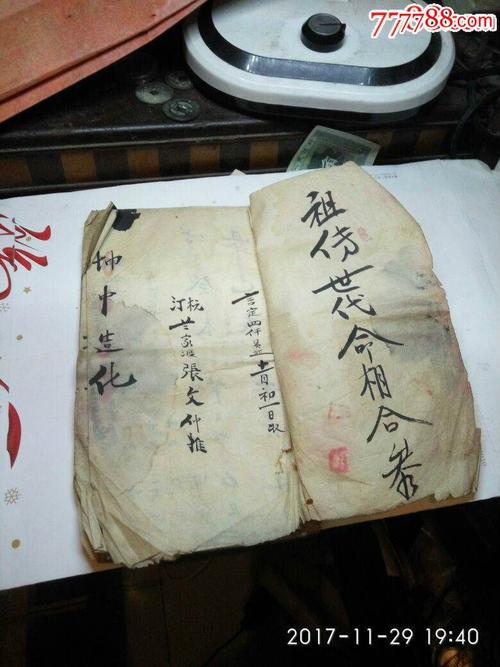 777788.com
祖传世代命相合参
言定四仟 十一月初一日取
汀杭 家 張文仲推
神中造化
2017-11-29 19:40